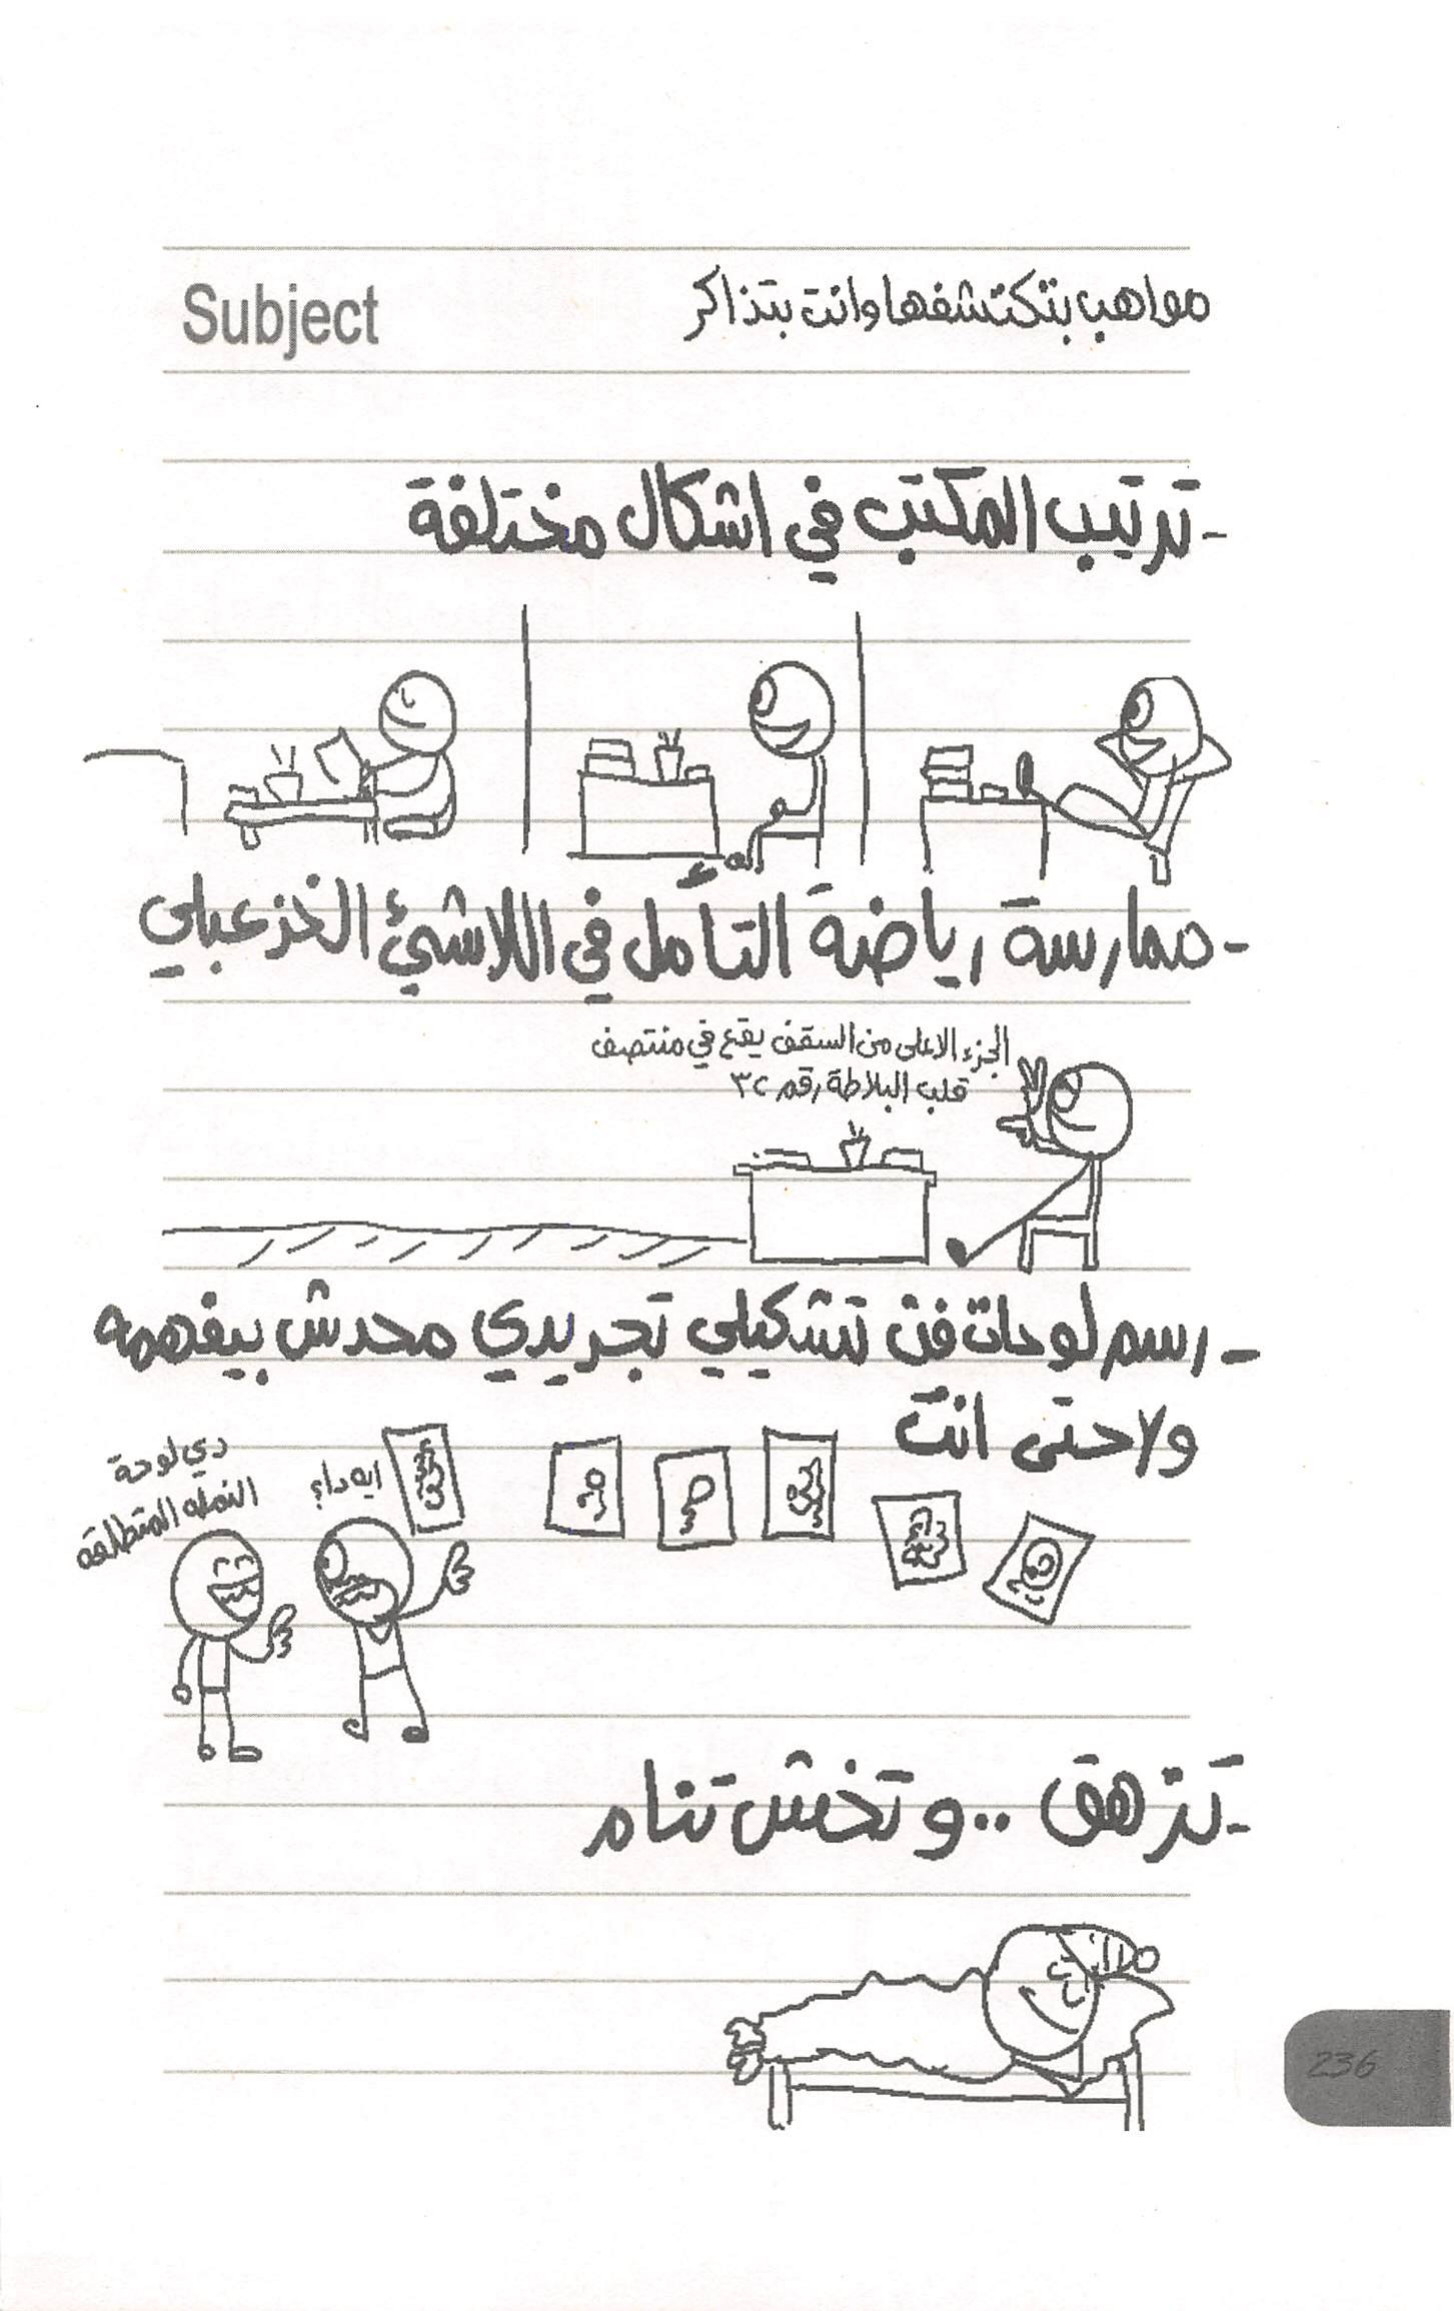 Subject
مواهب بتكتشفها وانت بتذاكر
- ترتيب المكتب في اشكال مختلفة
- ممارسة رياضة التأمل في اللاشئ الخزعبلي
الجزء الاعلى من السقف يقع في منتصف
قلب البلاطة رقم ٣٢
- رسم لوحات فن تشكيلي تجريدي محدش بيفهمه
ولا حتى انت
ايه دا؟
دي لوحة
النمله المتطالقه
- تزهق .. و تخش تنام
236